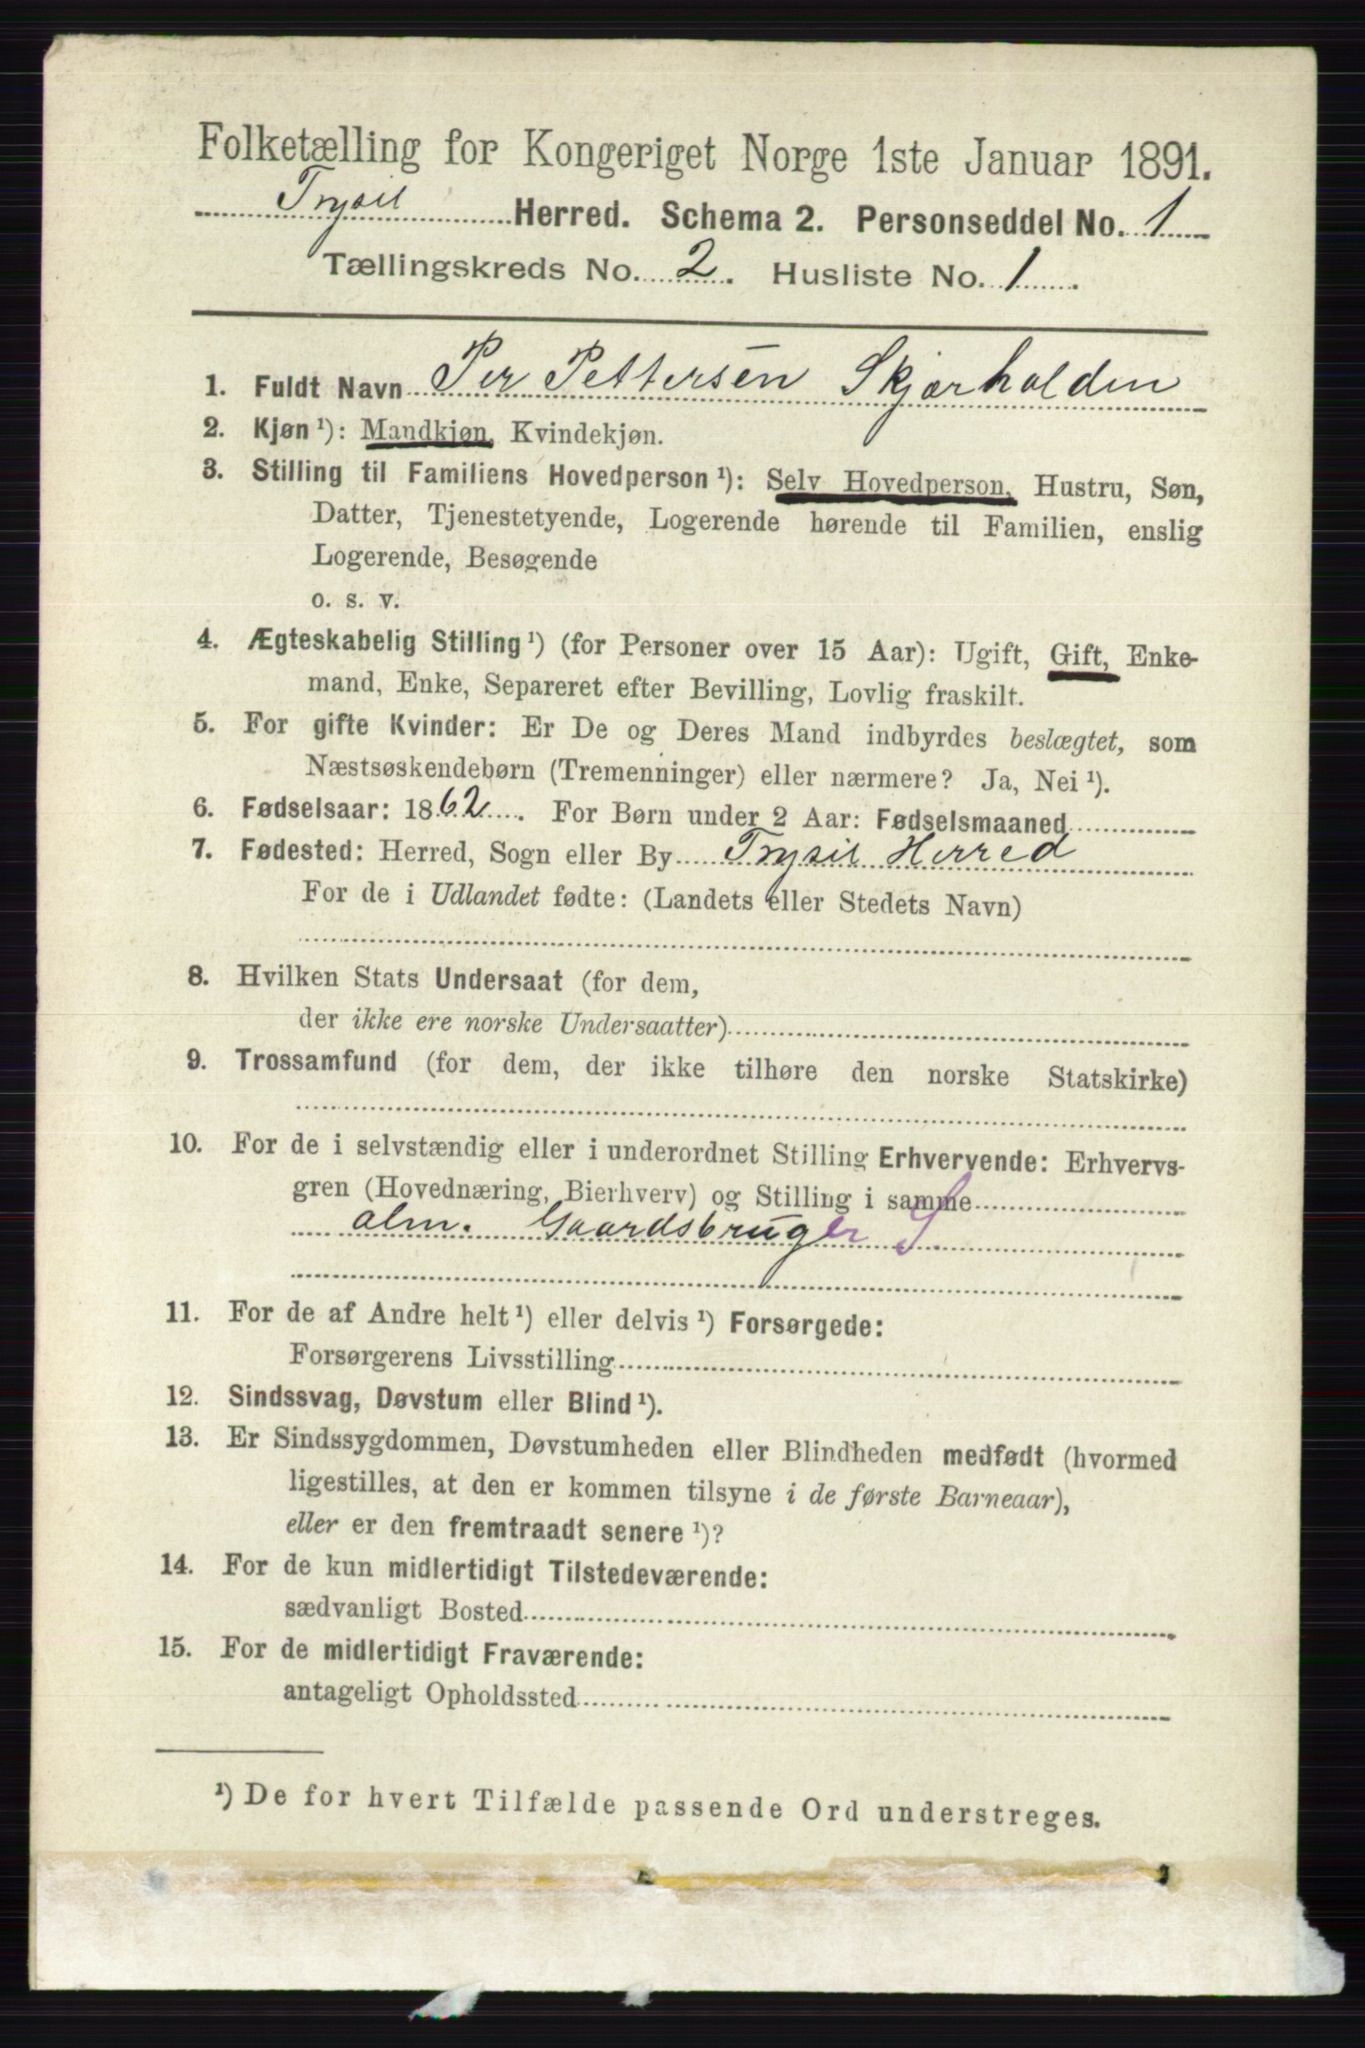 Folketælling for Kongeriget Norge 1ste Januar 1891.
Trysil Herred. Schema 2. Personseddel No. 1
Tællingskreds No. 2. Husliste No. 1.
1. Fuldt Navn Per Pettersen Skjærholden
2. Kjøn ¹): Mandkjøn, Kvindekjøn.
3. Stilling til Familiens Hovedperson ¹): Selv Hovedperson, Hustru, Søn,
Datter, Tjenestetyende, Logerende hørende til Familien, enslig
Logerende, Besøgende
o. s. v.
4. Ægteskabelig Stilling ¹) (for Personer over 15 Aar): Ugift, Gift, Enke-
mand, Enke, Separeret efter Bevilling, Lovlig fraskilt.
5. For gifte Kvinder: Er De og Deres Mand indbyrdes beslægtet, som
Næstsøskendebørn (Tremenninger) eller nærmere? Ja, Nei ¹).
6. Fødselsaar: 1862. For Børn under 2 Aar: Fødselsmaaned
7. Fødested: Herred, Sogn eller By Trysil Herred
For de i Udlandet fødte: (Landets eller Stedets Navn)
8. Hvilken Stats Undersaat (for dem,
der ikke ere norske Undersaatter)
9. Trossamfund (for dem, der ikke tilhøre den norske Statskirke)
10. For de i selvstændig eller i underordnet Stilling Erhvervende: Erhvervs-
gren (Hovednæring, Bierhverv) og Stilling i samme
alm. Gaardsbruger S
11. For de af Andre helt ¹) eller delvis ¹) Forsørgede:
Forsørgerens Livsstilling
12. Sindssvag, Døvstum eller Blind ¹).
13. Er Sindssygdommen, Døvstumheden eller Blindheden medfødt (hvormed
ligestilles, at den er kommen tilsyne i de første Barneaar),
eller er den fremtraadt senere ¹)?
14. For de kun midlertidigt Tilstedeværende:
sædvanligt Bosted
15. For de midlertidigt Fraværende:
antageligt Opholdssted
¹) De for hvert Tilfælde passende Ord understreges.